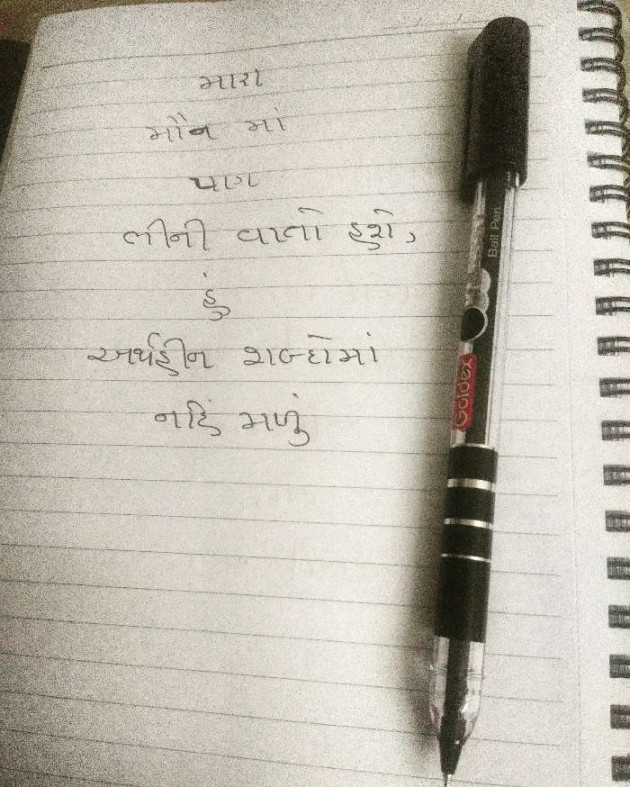 મારા
મૌન માં
પણ
લીની વાતો હશે,
હું
અર્થહીન શબ્દોમાં
નહિં મળું
Ball Pen
Goldex